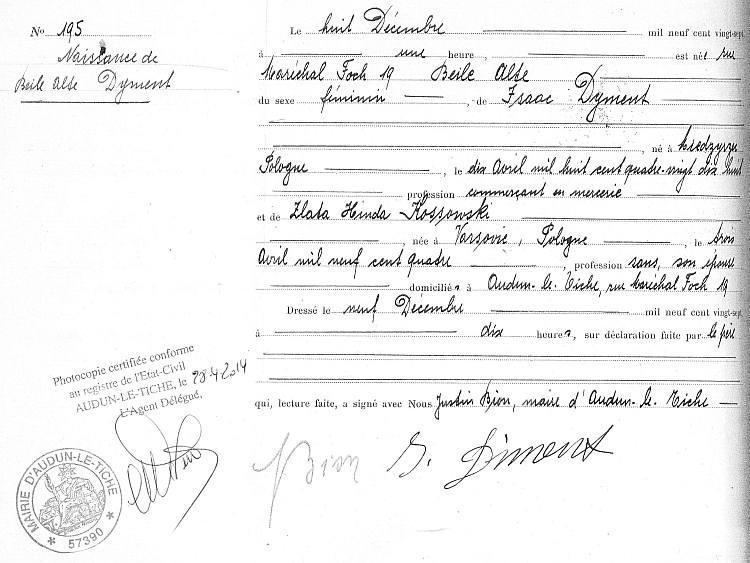 No 195
Naissance de
Beile Alte Dyment
Le huit Décembre mil neuf cent vingt-sept
à une heure, est née rue
Maréchal Foch 19 Beile Alte
du sexe féminin, de Isaac Dyment
, né à Miedzyrzec
Pologne, le dix Avril mil huit cent quatre-vingt dix huit
profession commerçant en mercerie
et de Zlata Hinda Kossowski
, née à Varsovie, Pologne, le trois
Avril mil neuf cent quatre, profession sans, son épouse
domiciliés à Audun-le-Tiche, rue Maréchal Foch 19
Dressé le neuf Décembre mil neuf cent vingt-sept,
à dix heures, sur déclaration faite par le père
qui, lecture faite, a signé avec Nous Justin Bion, maire d'Audun-le-Tiche
Photocopie certifiée conforme
au registre de l'Etat-Civil
AUDUN-LE-TICHE, le 28-4-2014
L'Agent Délégué,
Bion
Diment
MAIRIE D'AUDUN-LE-TICHE
* 57390 *